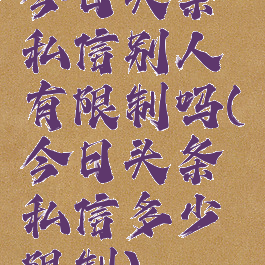 今日头条
私信别人
有限制吗(
今日头条
私信多少
限制)